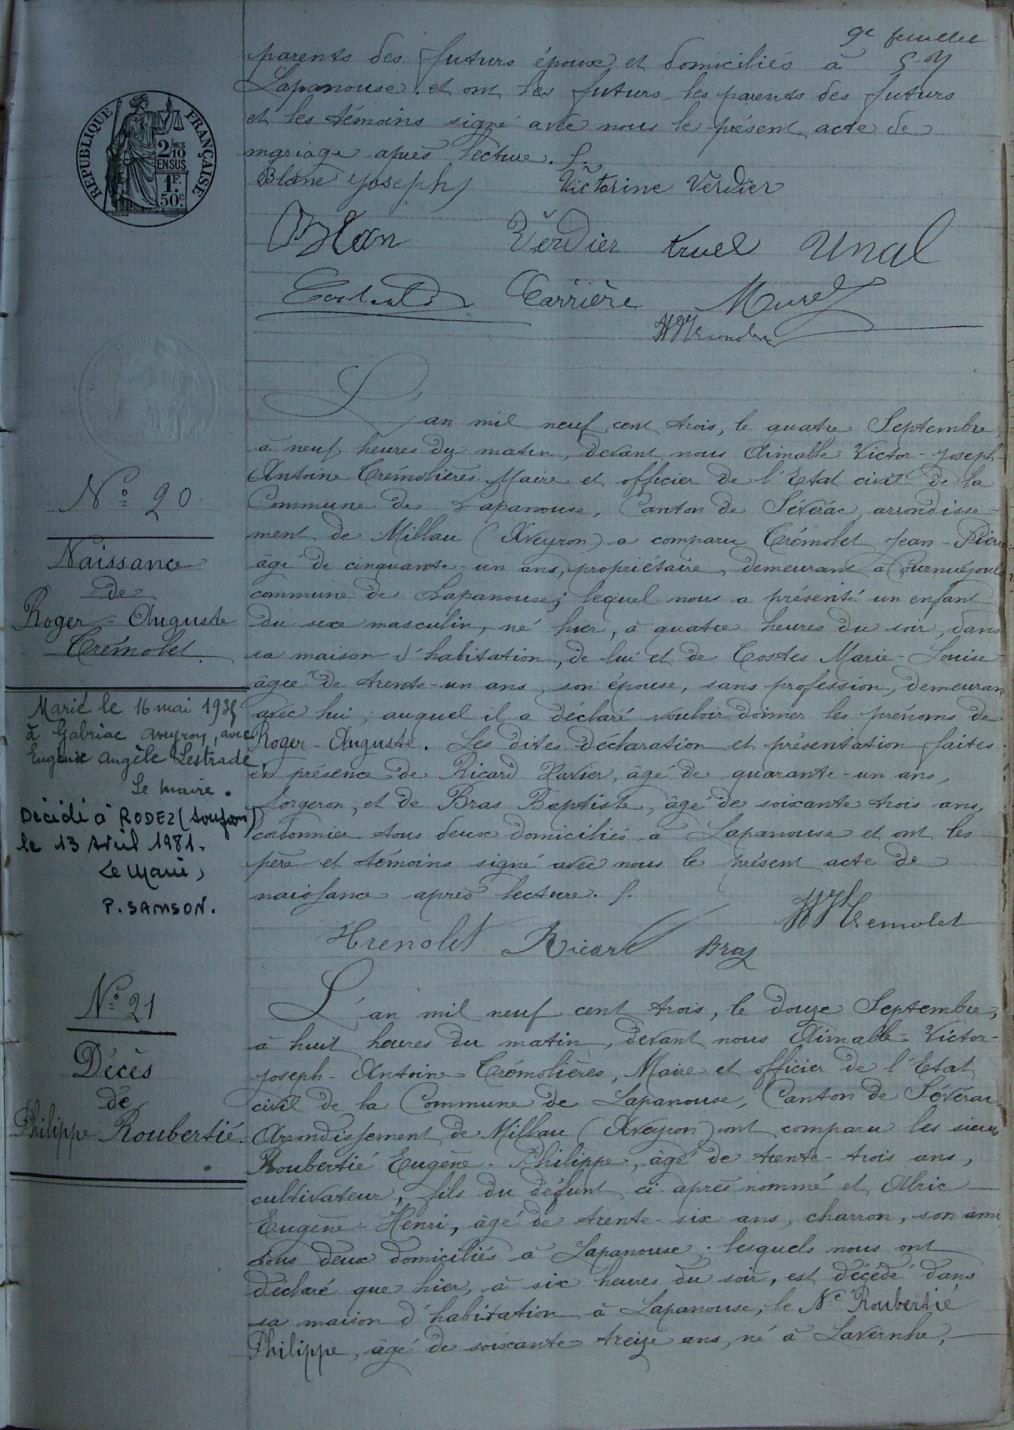 9e feuillet
parents des futurs époux et domiciliés à
Lapanouse et ont les futurs les parents des futurs
et les témoins signé avec nous le présent acte de
mariage après lecture.
Blanc Joseph Victorine Verdier
Verdier Unal
Carrière
RÉPUBLIQUE FRANÇAISE
2/10
EN SUS
1F
50c
L'an mil neuf cent trois, le quatre Septembre,
à neuf heures du matin, devant nous Aimable Victor-Joseph-
Antoine Crémolières Maire et officier de l'Etat civil de la
Commune de Lapanouse, Canton de Sévérac, arrondisse-
ment de Millau (Aveyron) a comparu Trémolet Jean-Pierre
âgé de cinquante-un ans, propriétaire, demeurant à
commune de Lapanouse; lequel nous a présenté un enfant
du sexe masculin, né hier, à quatre heures du soir, dans
sa maison d'habitation, de lui et de Costes Marie-Louise
âgée de trente-un ans, son épouse, sans profession, demeurant
avec lui, auquel il a déclaré vouloir donner les prénoms de
Roger-Auguste. Les dites déclaration et présentation faites
en présence de Ricard Xavier, âgé de quarante-un ans,
forgeron, et de Bras Baptiste, âgé de soixante trois ans,
cordonnier tous deux domiciliés à Lapanouse et ont les
père et témoins signé avec nous le présent acte de
naissance après lecture.
Ricard Bras
No 20
Naissance
de
Roger-Auguste
Trémolet.
Marié le 16 mai 193
à Gabriac Aveyron, avec
Eugénie Angèle Lestrade
Le maire.
Décédé à RODEZ
le 13 Avril 1981.
Le Maire,
P. SAMSON.
No 21
Décès
de
Philippe Roubertié.
L'an mil neuf cent trois, le douze Septembre,
à huit heures du matin, devant nous Aimable-Victor-
Joseph-Antoine Crémolières, Maire et officier de l'Etat
civil de la Commune de Lapanouse, Canton de Sévérac,
Arrondissement de Millau (Aveyron) ont comparu les sieurs
Roubertié Eugène-Philippe, âgé de trente-trois ans,
cultivateur, fils du défunt ci-après nommé et Alric
Eugène-Henri, âgé de trente-six ans, charron, son ami
tous deux domiciliés à Lapanouse; lesquels nous ont
déclaré que hier, à six heures du soir, est décédé dans
sa maison d'habitation à Lapanouse, le Né Roubertié
Philippe, âgé de soixante-treize ans, né à Lavernhe,